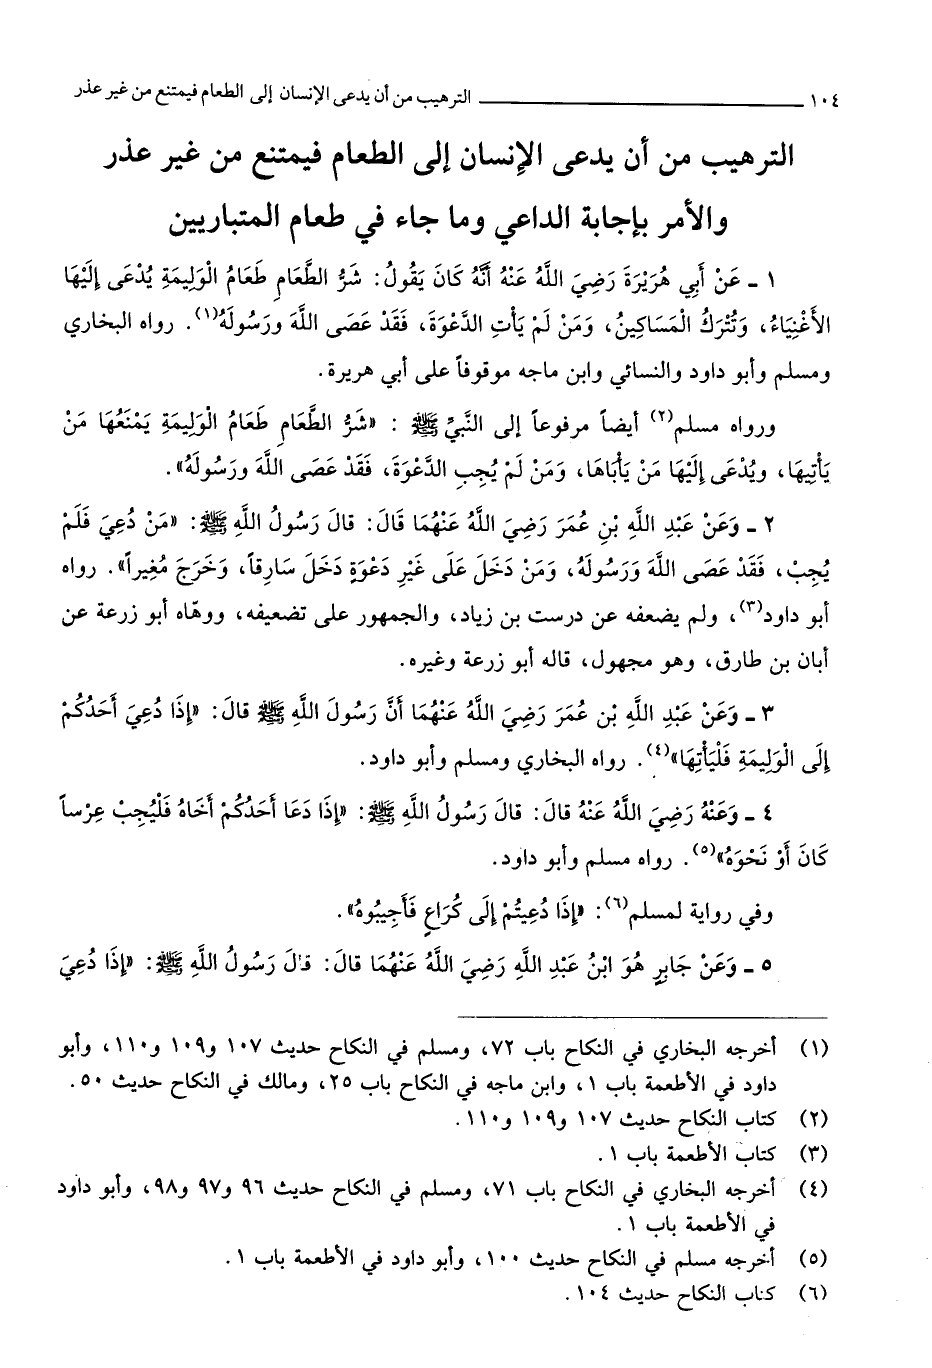 ١٠٤ ــــــــ الترهيب من أن يدعى الإنسان إلى الطعام فيمتنع من غير عذر
الترهيب من أن يدعى الإنسان إلى الطعام فيمتنع من غير عذر
والأمر بإجابة الداعي وما جاء في طعام المتباريين
١ ـ عَنْ أَبِي هُرَيْرَةَ رَضِيَ اللَّهُ عَنْهُ أَنَّهُ كَانَ يَقُولُ: شَرُّ الطَّعَامِ طَعَامُ الْوَلِيمَةِ يُدْعَى إِلَيْهَا
الأَغْنِيَاءُ، وَتُتْرَكُ الْمَسَاكِينُ، وَمَنْ لَمْ يَأْتِ الدَّعْوَةَ، فَقَدْ عَصَى اللَّهَ ورَسُولَهُ(١). رواه البخاري
ومسلم وأبو داود والنسائي وابن ماجه موقوفاً على أبي هريرة.
ورواه مسلم(٢) أيضاً مرفوعاً إلى النَّبيِّ ﷺ : «شَرُّ الطَّعَامِ طَعَامُ الْوَلِيمَةِ يَمْنَعُهَا مَنْ
يَأْتِيهَا، ويُدْعَى إِلَيْهَا مَنْ يَأْبَاهَا، وَمَنْ لَمْ يُجِبِ الدَّعْوَةَ، فَقَدْ عَصَى اللَّهَ ورَسُولَهُ».
٢ ـ وَعَنْ عَبْدِ اللَّهِ بْنِ عُمَرَ رَضِيَ اللَّهُ عَنْهُمَا قَالَ: قالَ رَسُولُ اللَّهِ ﷺ: «مَنْ دُعِيَ فَلَمْ
يُجِبْ، فَقَدْ عَصَى اللَّهَ وَرَسُولَهُ، وَمَنْ دَخَلَ عَلَى غَيْرِ دَعْوَةٍ دَخَلَ سَارِقاً، وَخَرَجَ مُغِيراً». رواه
أبو داود(٣)، ولم يضعفه عن درست بن زياد، والجمهور على تضعيفه، ووهّاه أبو زرعة عن
أبان بن طارق، وهو مجهول، قاله أبو زرعة وغيره.
٣ ـ وَعَنْ عَبْدِ اللَّهِ بْنِ عُمَرَ رَضِيَ اللَّهُ عَنْهُمَا أَنَّ رَسُولَ اللَّهِ ﷺ قالَ: «إِذَا دُعِيَ أَحَدُكُمْ
إِلَى الْوَلِيمَةِ فَلْيَأْتِهَا»(٤). رواه البخاري ومسلم وأبو داود.
٤ ـ وَعَنْهُ رَضِيَ اللَّهُ عَنْهُ قالَ: قالَ رَسُولُ اللَّهِ ﷺ: «إِذَا دَعَا أَحَدُكُمْ أَخَاهُ فَلْيُجِبْ عِرْساً
كَانَ أَوْ نَحْوَهُ»(٥). رواه مسلم وأبو داود.
وفي رواية لمسلم(٦): «إِذَا دُعِيتُمْ إِلَى كُرَاعٍ فَأَجِيبُوهُ».
٥ ـ وَعَنْ جَابِرٍ هُوَ ابْنُ عَبْدِ اللَّهِ رَضِيَ اللَّهُ عَنْهُمَا قالَ: قالَ رَسُولُ اللَّهِ ﷺ: «إِذَا دُعِيَ
(١) أخرجه البخاري في النكاح باب ٧٢، ومسلم في النكاح حديث ١٠٧ و١٠٩ و١١٠، وأبو
داود في الأطعمة باب ١، وابن ماجه في النكاح باب ٢٥، ومالك في النكاح حديث ٥٠.
(٢) كتاب النكاح حديث ١٠٧ و١٠٩ و١١٠.
(٣) كتاب الأطعمة باب ١.
(٤) أخرجه البخاري في النكاح باب ٧١، ومسلم في النكاح حديث ٩٦ و٩٧ و٩٨، وأبو داود
في الأطعمة باب ١.
(٥) أخرجه مسلم في النكاح حديث ١٠٠، وأبو داود في الأطعمة باب ١.
(٦) كتاب النكاح حديث ١٠٤.